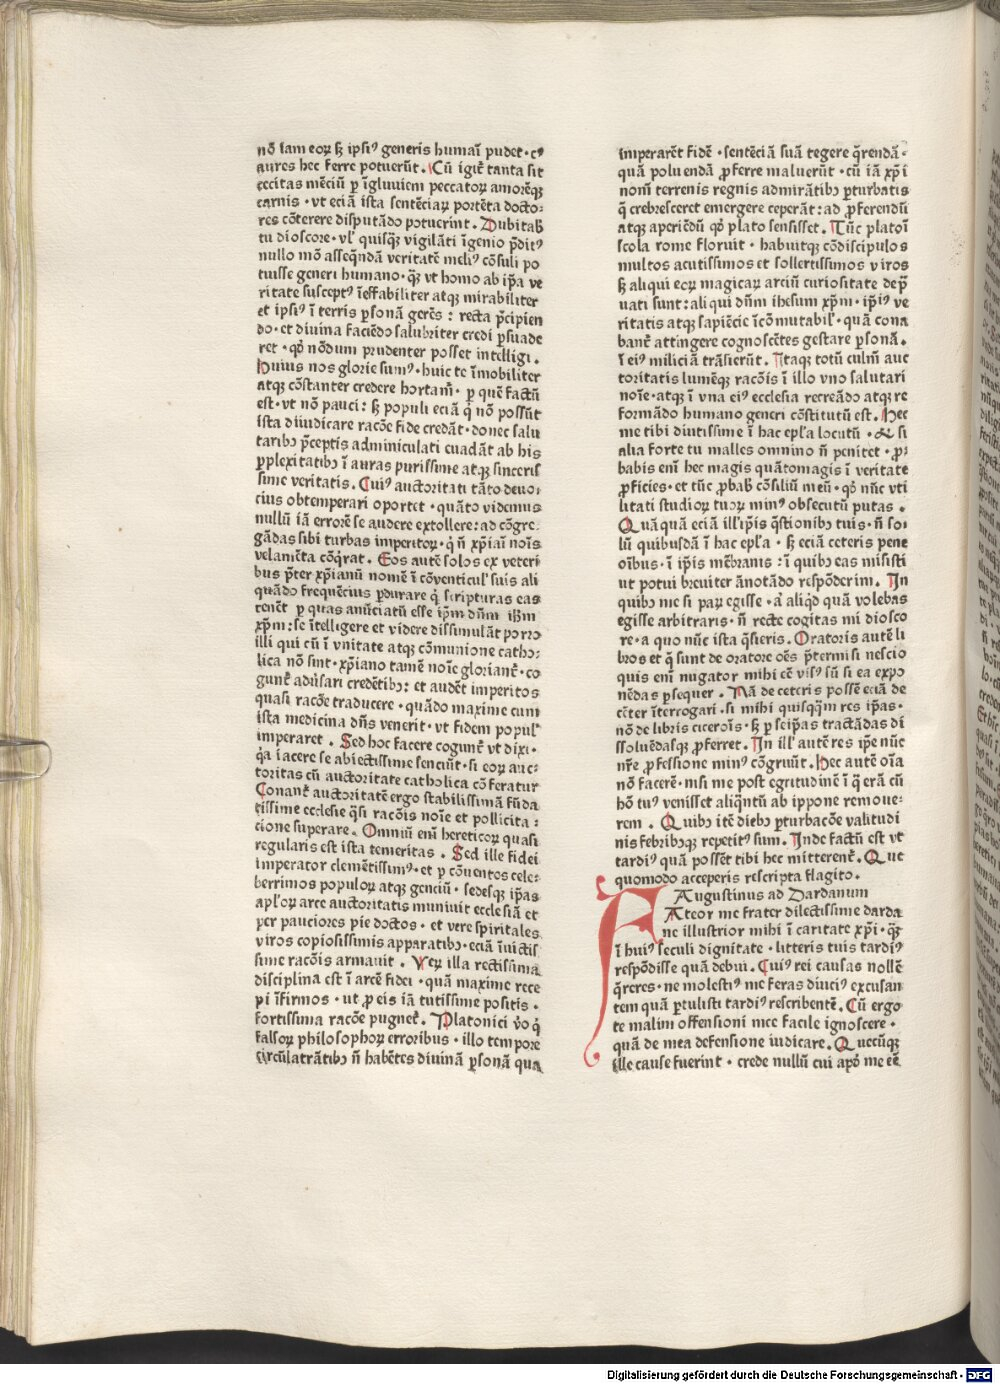 nō iam eoꝝ ſꝫ ipſiꝰ generis humaī pudet · cꝰ
aures hec ferre potuerūt. Cū igit̄ tanta ſit
cecitas mēciū ꝑ īgluuiem peccatoꝝ amorēqꝫ
carnis · vt eciā iſta ſentēciaꝝ portēta docto⸗
res cōterere diſputādo potuerint. Dubitabꝭ
tu dioſcore · vl' quiſqꝫ vigilāti īgenio p̄ditꝰ
nullo mō aſſeq̄ndā veritatē meliꝰ cōſuli po
tuiſſe generi humano · qꝫ vt homo ab ip̄a ve
ritate ſuſceptꝰ īeffabiliter atqꝫ mirabiliter
et ipſiꝰ ī terris ꝑſonā gerēs : recta p̄cipien
do · et diuina faciēdo ſalubriter credi ꝑſuade
ret · qꝙ nōdum prudenter poſſet intelligi .
Huius nos glorie ſumꝰ · huic te īmobiliter
atqꝫ cōſtanter credere hortam̄ · ꝑ quē factū
eſt · vt nō pauci : ſꝫ populi eciā q̇ nō poſſūt
iſta diiudicare racōe fide credāt · donec ſalu
taribꝫ p̄ceptis adminiculati euadāt ab his
ꝑplexitatibꝫ ī auras puriſſime atqꝫ ſinceriſ
ſime veritatis. Cuiꝰ auctoritati tāto deuo⸗
cius obtemperari oportet · quāto videmus
nullū iā errorē ſe audere extollere : ad cōgre
gādas ſibi turbas imperitoꝝ · q̇ ñ xp̄iaī noīs
velamēta cōq̄rat . Eos autē ſolos ex veteri
bus p̄ter xp̄ianū nomē ī cōventicul' ſuis ali
quādo frequēcius ꝑdurare q̇ ſcripturas eas
tenēt ꝑ quas anūciatū eſſe ip̄m dn̄m ihm̄
xp̄m : ſe ītelligere et videre diſſimulāt porro
illi qui cū ī vnitate atqꝫ cōmunione catho⸗
lica nō ſint · xp̄iano tamē noīe gloriant̄ · co
gunt̄ adu̇ſari credētibꝫ : et audēt imperitos
quaſi racōe traducere · quādo maxime cum
iſta medicina dn̄s venerit · vt fidem popul'
imperaret . Sed hoc facere cogunt̄ vt dixi ·
qꝛ iacere ſe abiectiſſime ſenciūt · ſi eoꝝ auc⸗
toritas cū auctoritate catholica cōferatur
Conant̄ auctoritatē ergo ſtabiliſſimā fūda
tiſſime eccleſie q̄ſi racōis noīe et pollicita⸗
cione ſuperare . Omniū enī hereticoꝝ quaſi
regularis eſt iſta temeritas . Sed ille fidei
imperator clemētiſſimꝰ · et ꝑ cōuentos cele⸗
berrimos populoꝝ atqꝫ genciū · ſedeſqꝫ ip̄as
apl'oꝝ arce auctoritatis muniuit eccleſiā et
per pauciores pie doctos · et vere ſpiritales
viros copioſiſſimis apparatibꝫ · eciā īuictiſ
ſime racōis armauit . Veꝝ illa rectiſſima
diſciplina eſt ī arcē fidei · quā maxime rece
pi īfirmos · ut ꝓ eis iā tutiſſime poſitis ·
fortiſſima racōe pugnet̄. Platonici v̇o q̇
falſoꝝ philoſophoꝝ erroribus · illo tempore
circūlatrātibꝫ ñ habētes diuinā ꝑſonā qua
imperarēt fidē · ſentēciā ſuā tegere q̄rendā ·
quā poluendā ꝓferre maluerūt · cū iā xp̄i
nom̄ terrenis regnis admirātibꝫ ꝑturbatis
q̄ crebreſceret emergere ceperāt : ad ꝓferendū
atqꝫ aperiēdū qꝙ plato ſenſiſſet. Tūc platoī
ſcola rome floruit · habuitqꝫ cōdiſcipulos
multos acutiſſimos et ſollertiſſimos viros
ſꝫ aliqui eoꝝ magicaꝝ arciū curioſitate dep̄
uati ſunt : aliqui dn̄m iheſum xp̄m · ip̄iꝰ ve
ritatis atqꝫ ſapiēcie īcōmutabil' · quā cona
bant̄ attingere cognoſcētes geſtare ꝑſonā .
ī eiꝰ miliciā trāſierūt. Itaqꝫ totū culm̄ auc
toritatis lumēqꝫ racōis ī illo vno ſalutari
noīe · atqꝫ ī vna eiꝰ eccleſia recreādo atqꝫ re
formādo humano generi cōſtitutū eſt . Hec
me tibi diutiſſime ī hac epl'a locutū · & ſi
alia forte tu malles omnino ñ penitet · ꝓ⸗
babis enī hec magis quātomagis ī veritate
ꝓficies · et tūc ꝓbabꝭ cōſiliū meū · qꝙ nūc vti
litati ſtudioꝝ tuoꝝ minꝰ obſecutū putas .
Quāquā eciā ill' ip̄is q̄ſtionibꝫ tuis · ñ ſo⸗
lū quibuſdā ī hac epl'a · ſꝫ eciā ceteris pene
oībus · ī ip̄is mēbranis : ī quibꝫ eas miſiſti
ut potui breuiter ānotādo reſpōderim . In
quibꝫ me ſi paꝝ egiſſe · aꝉ aliqd̄ quā volebas
egiſſe arbitraris · ñ recte cogitas mi dioſco
re · a quo nūc iſta q̄ſieris. Oratoris autē li
bros et q̄ ſunt de oratore oēs p̄termiſi neſcio
quis enī nugator mihi eē viſꝰ ſū ſi ea expo
nēdas ꝑſequer . Nā de ceteris poſſē eciā de
cēter īterrogari · ſi mihi quiſqm̄ res ip̄as ·
nō de libris ciceroīs · ſꝫ ꝑ ſeip̄as tractādas di
ſſoluēdaſqꝫ ꝓferret. In ill' autē res ip̄e nūc
nr̄e ꝓfeſſione minꝰ cōgruūt. Hec autē oīa
nō facerē · niſi me poſt egritudinē ī q̄ erā cū
hō tuꝰ veniſſet aliq̄ntū ab ippone remoue⸗
rem . Quibꝫ itē diebꝫ ꝑturbacōe valitudi
nis febribꝫqꝫ repetitꝰ ſum. Inde factū eſt vt
tardiꝰ quā poſſēt tibi hec mitterent̄. Q ue
quomodo acceperis reſcripta flagito .
Auguſtinus ad Dardanum
FAteor me frater dilectiſſime darda
ne illuſtrior mihi ī caritate xp̄i · qꝫ
ī huiꝰ ſeculi dignitate · litteris tuis tardiꝰ
reſpōdiſſe quā debui . Cuiꝰ rei cauſas nollē
q̄reres · ne moleſtiꝰ me feras diuciꝰ excuſan
tem quā ꝑtuliſti tardiꝰ reſcribentē. Cū ergo
te malim offenſioni mee facile ignoſcere ·
quā de mea defenſione iudicare. Quecūqꝫ
ille cauſe fuerint · crede nullū cui apd̄ me eē
Digitalisierung gefördert durch die Deutsche Forschungsgemeinschaft - DFG